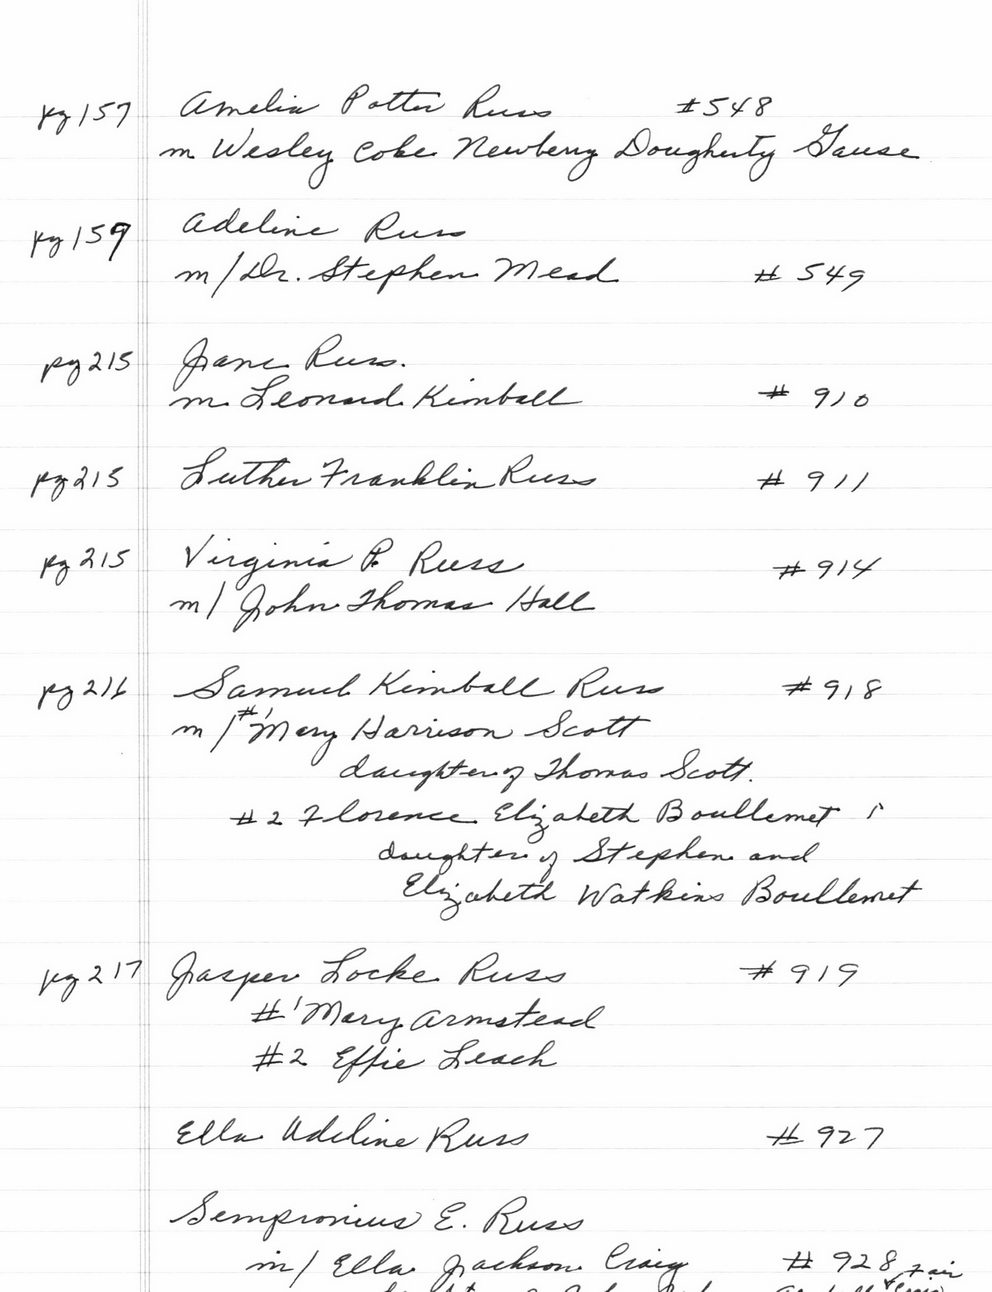 pg 157 Amelia Potter Russ #548
m Wesley Coke Newberry Dougherty Gause
pg 159 Adeline Russ
m/Dr. Stephen Mead # 549
pg 215 Jane Russ.
m Leonard Kimball # 910
pg 215 Luther Franklin Russ # 911
pg 215 Virginia P. Russ #914
m/ John Thomas Hall
pg 216 Samuel Kimball Russ #918
m/#1 Mary Harrison Scott
daughter of Thomas Scott.
#2 Florence Elizabeth Boullemet
daughter of Stephen and
Elizabeth Watkins Boullemet
pg 217 Jasper Locke Russ #919
#1 Mary Armstead
#2 Effie Leach
Ella Adeline Russ # 927
Sempronius E. Russ
m/ Ella Jackson Craig # 928